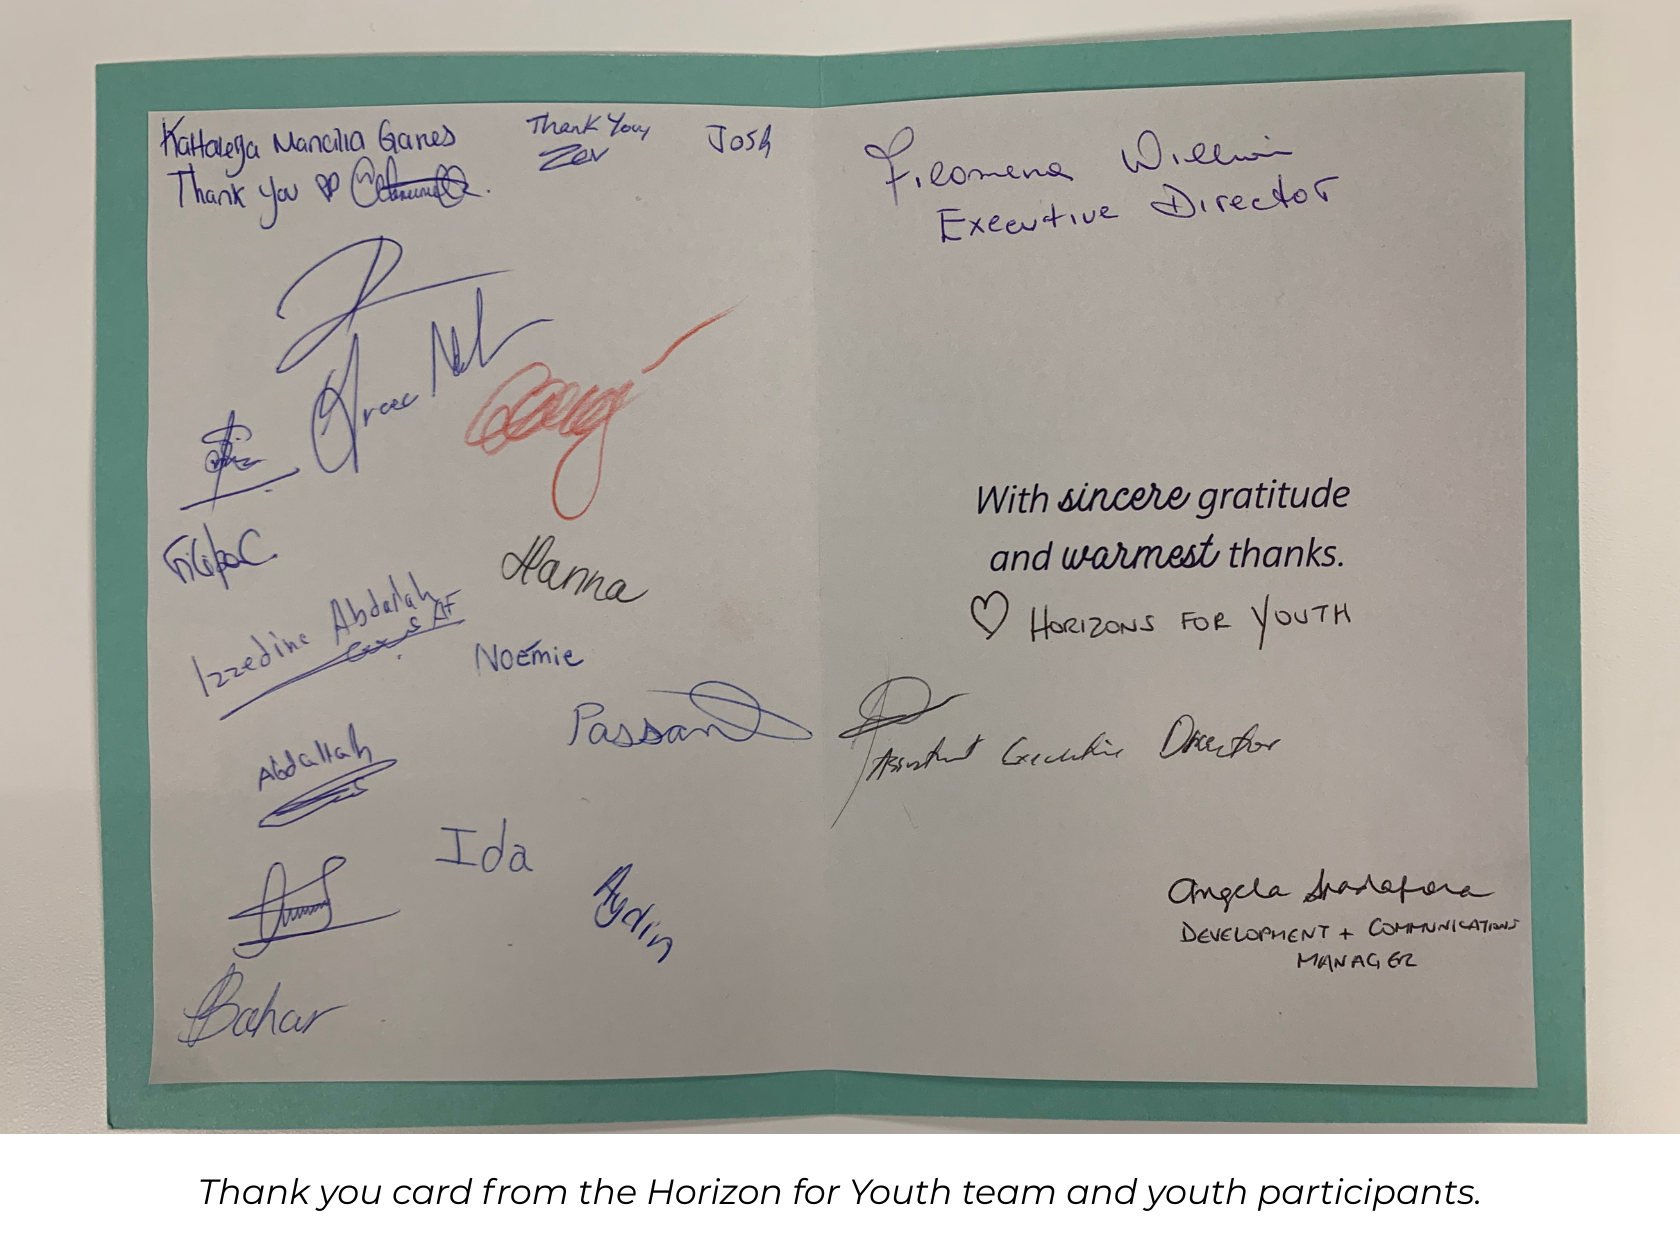 Mancilla Ganes
Thank you
Thank You
Zev
Josh
Hanna
Izzedine Abdallah
Noémie
Passant
Abdallah
Ida
Aydin
Bahar
Filomena
Executive Director
With sincere gratitude
and warmest thanks.
♡ HORIZONS FOR YOUTH
Assistant Executive Director
Angela
DEVELOPMENT + COMMUNICATIONS
MANAGER
Thank you card from the Horizon for Youth team and youth participants.